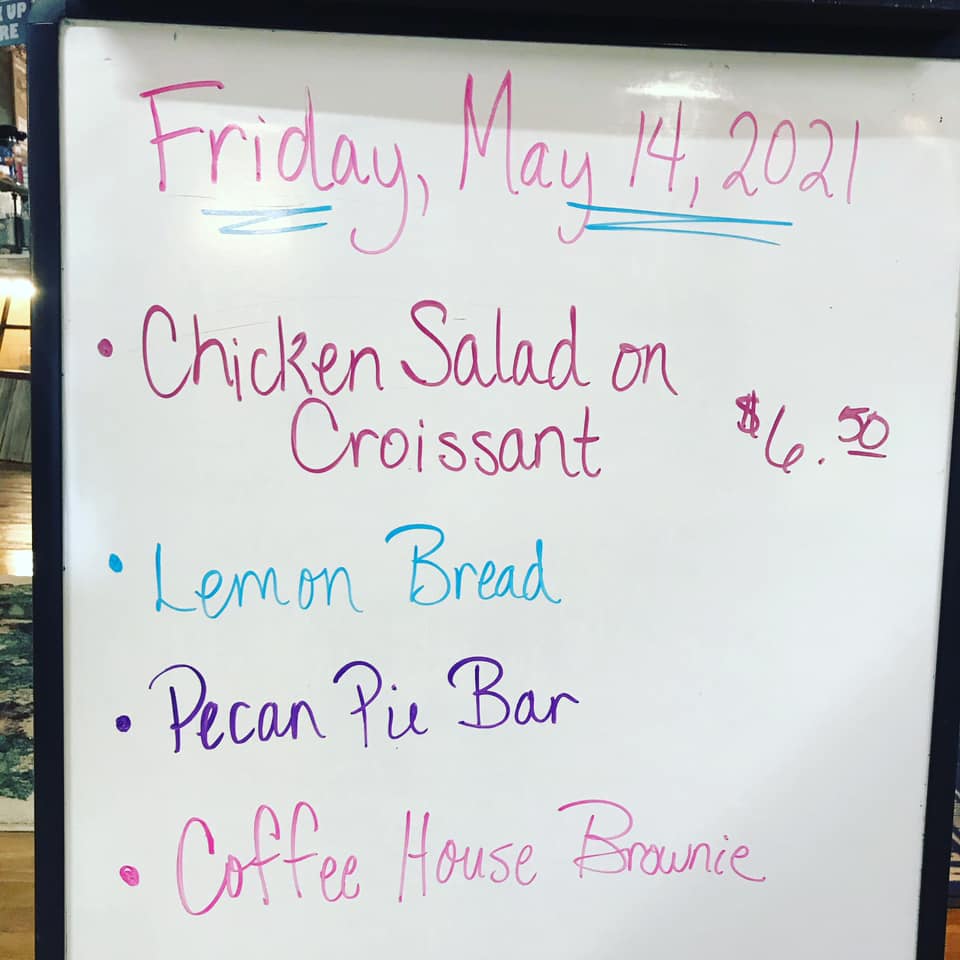 UP
RE
Friday, May 14, 2021
• Chicken Salad on
Croissant $6.50
• Lemon Bread
• Pecan Pie Bar
• Coffee House Brownie